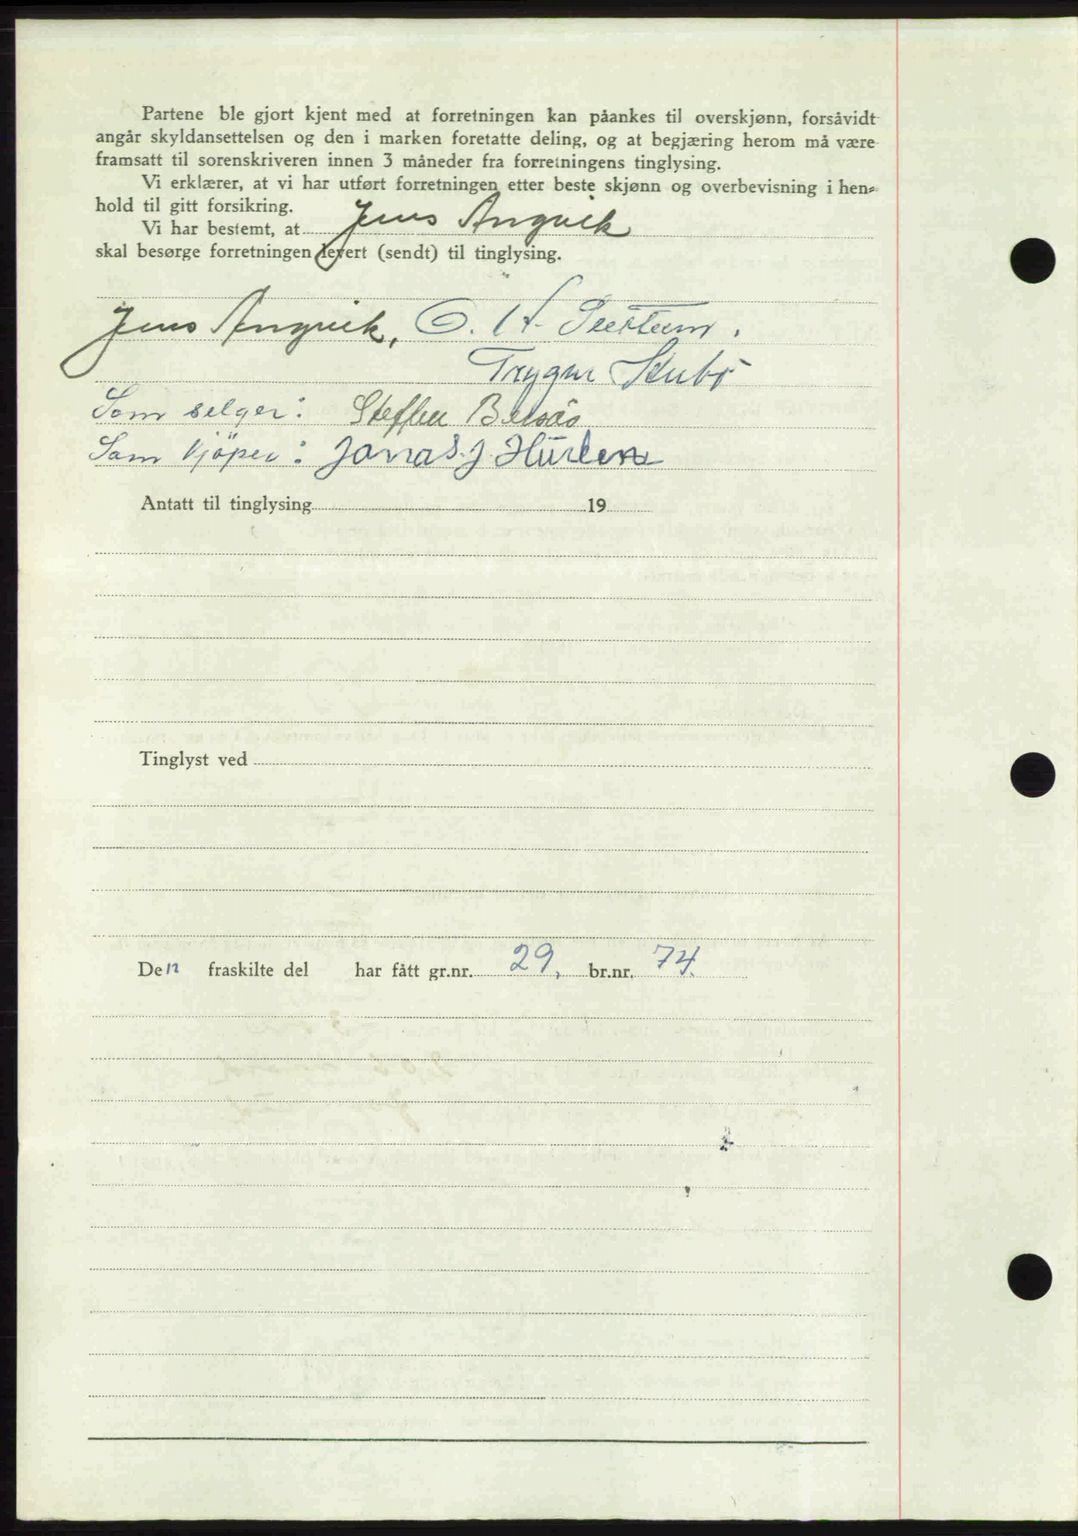 Partene ble gjort kjent med at forretningen kan påankes til overskjønn, forsåvidt
angår skyldansettelsen og den i marken foretatte deling, og at begjæring herom må være
framsatt til sorenskriveren innen 3 måneder fra forretningens tinglysing.
Vi erklærer, at vi har utført forretningen etter beste skjønn og overbevisning i hen-
hold til gitt forsikring.
Vi har bestemt, at Jens Angvik
skal besørge forretningen levert (sendt) til tinglysing.
Jens Angvik, O. H.
Trygve Stubø
Som selger: Steffen Belsås
Som kjöper: Jonas J Hürlen
Antatt til tinglysing 19
Tinglyst ved
Den fraskilte del har fått gr.nr. 29, br.nr. 74.